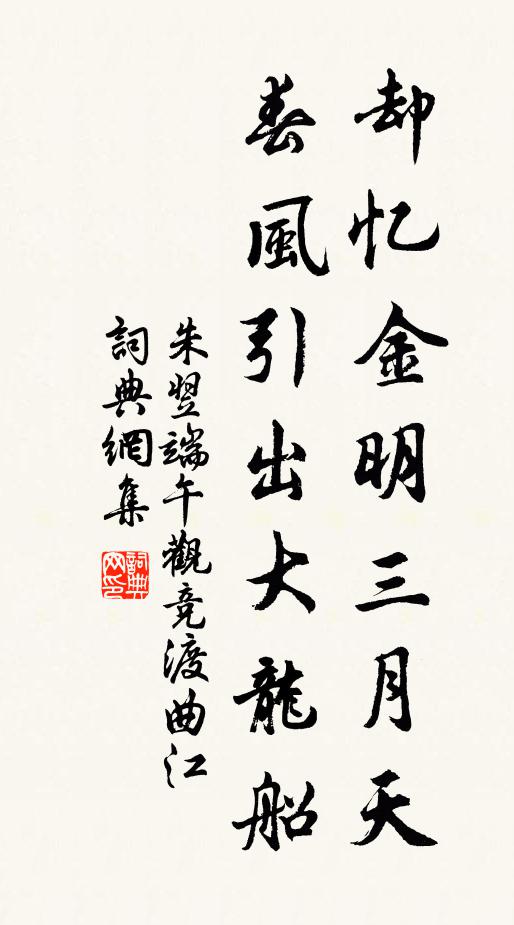 却忆金明三月天
春風引出大龍船
朱翌端午觀竞渡曲江
詞典網集
詞典
网印